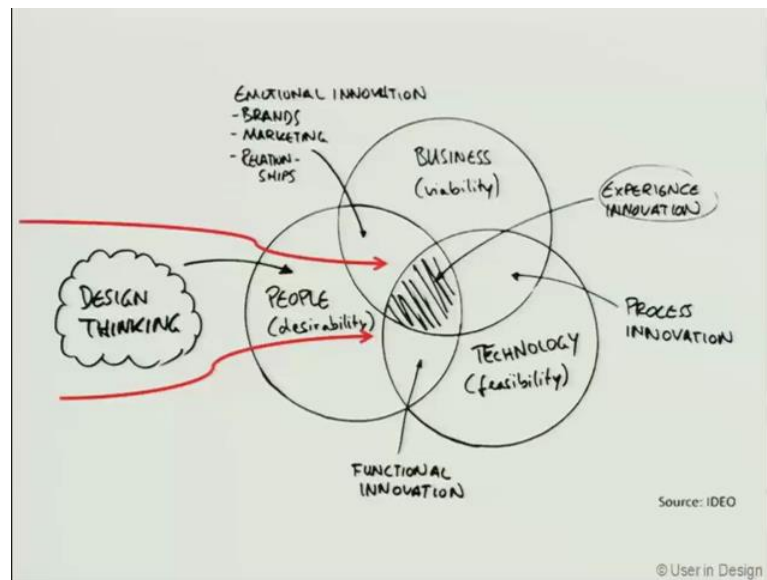 EMOTIONAL INNOVATION
- BRANDS
- MARKETING
- RELATION-
SHIPS
BUSINESS
(viability)
EXPERIENCE
INNOVATION
DESIGN
THINKING
PEOPLE
(desirability)
PROCESS
INNOVATION
TECHNOLOGY
(feasibility)
FUNCTIONAL
INNOVATION
Source: IDEO
© User in Design